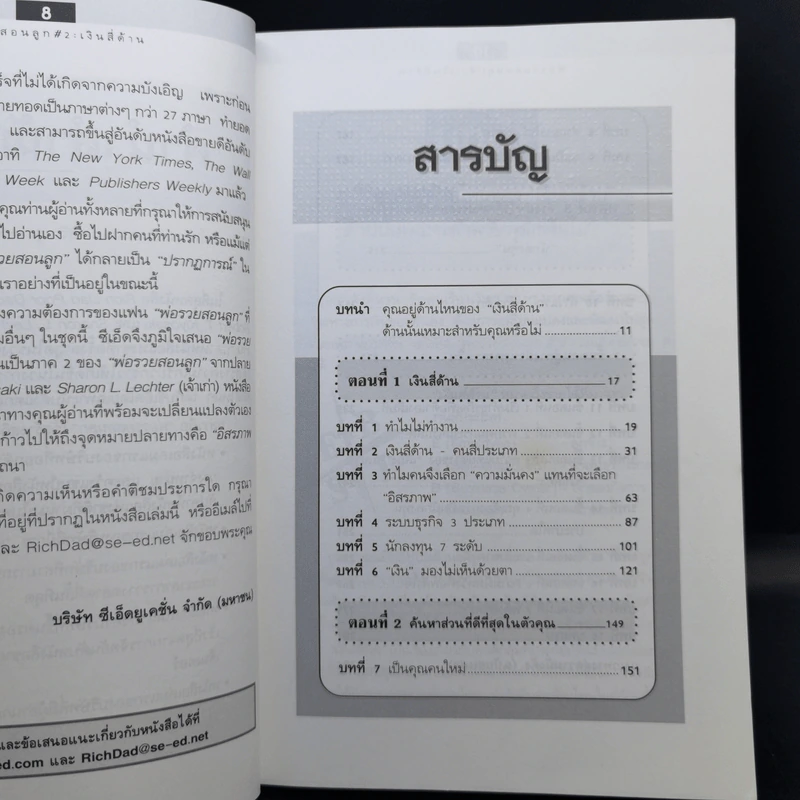 8
สอนลูก#2:เงินสี่ด้าน
ร็จที่ไม่ได้เกิดจากความบังเอิญ เพราะก่อน
ายทอดเป็นภาษาต่างๆ กว่า 27 ภาษา ทำยอด
และสามารถขึ้นสู่อันดับหนังสือขายดีอันดับ
อาทิ The New York Times, The Wall
Week และ Publishers Weekly มาแล้ว
คุณท่านผู้อ่านทั้งหลายที่กรุณาให้การสนับสนุน
ไปอ่านเอง ซื้อไปฝากคนที่ท่านรัก หรือแม้แต่
วยสอนลูก" ได้กลายเป็น "ปรากฏการณ์" ใน
ราอย่างที่เป็นอยู่ในขณะนี้
งความต้องการของแฟน "พ่อรวยสอนลูก" ที่
มอื่นๆ ในชุดนี้ ซีเอ็ดจึงภูมิใจเสนอ "พ่อรวย
นเป็นภาค 2 ของ "พ่อรวยสอนลูก" จากปลาย
saki และ Sharon L. Lechter (เจ้าเก่า) หนังสือ
าทางคุณผู้อ่านที่พร้อมจะเปลี่ยนแปลงตัวเอง
ก้าวไปให้ถึงจุดหมายปลายทางคือ "อิสรภาพ
ถนา
กิดความเห็นหรือคำติชมประการใด กรุณา
ที่อยู่ที่ปรากฏในหนังสือเล่มนี้ หรืออีเมล์ไปที่
ละ RichDad@se-ed.net จักขอบพระคุณ
บริษัท ซีเอ็ดยูเคชั่น จำกัด (มหาชน)
และข้อเสนอแนะเกี่ยวกับหนังสือได้ที่
ed.com และ RichDad@se-ed.net
สารบัญ
บทนำ คุณอยู่ด้านไหนของ "เงินสี่ด้าน"
ด้านนั้นเหมาะสำหรับคุณหรือไม่ .................... 11
ตอนที่ 1 เงินสี่ด้าน ............................ 17
บทที่ 1 ทำไมไม่ทำงาน ............................ 19
บทที่ 2 เงินสี่ด้าน - คนสี่ประเภท .................... 31
บทที่ 3 ทำไมคนจึงเลือก "ความมั่นคง" แทนที่จะเลือก
"อิสรภาพ" ............................ 63
บทที่ 4 ระบบธุรกิจ 3 ประเภท .................... 87
บทที่ 5 นักลงทุน 7 ระดับ .................... 101
บทที่ 6 "เงิน" มองไม่เห็นด้วยตา .................... 121
ตอนที่ 2 ค้นหาส่วนที่ดีที่สุดในตัวคุณ ............ 149
บทที่ 7 เป็นคุณคนใหม่ ............................ 151